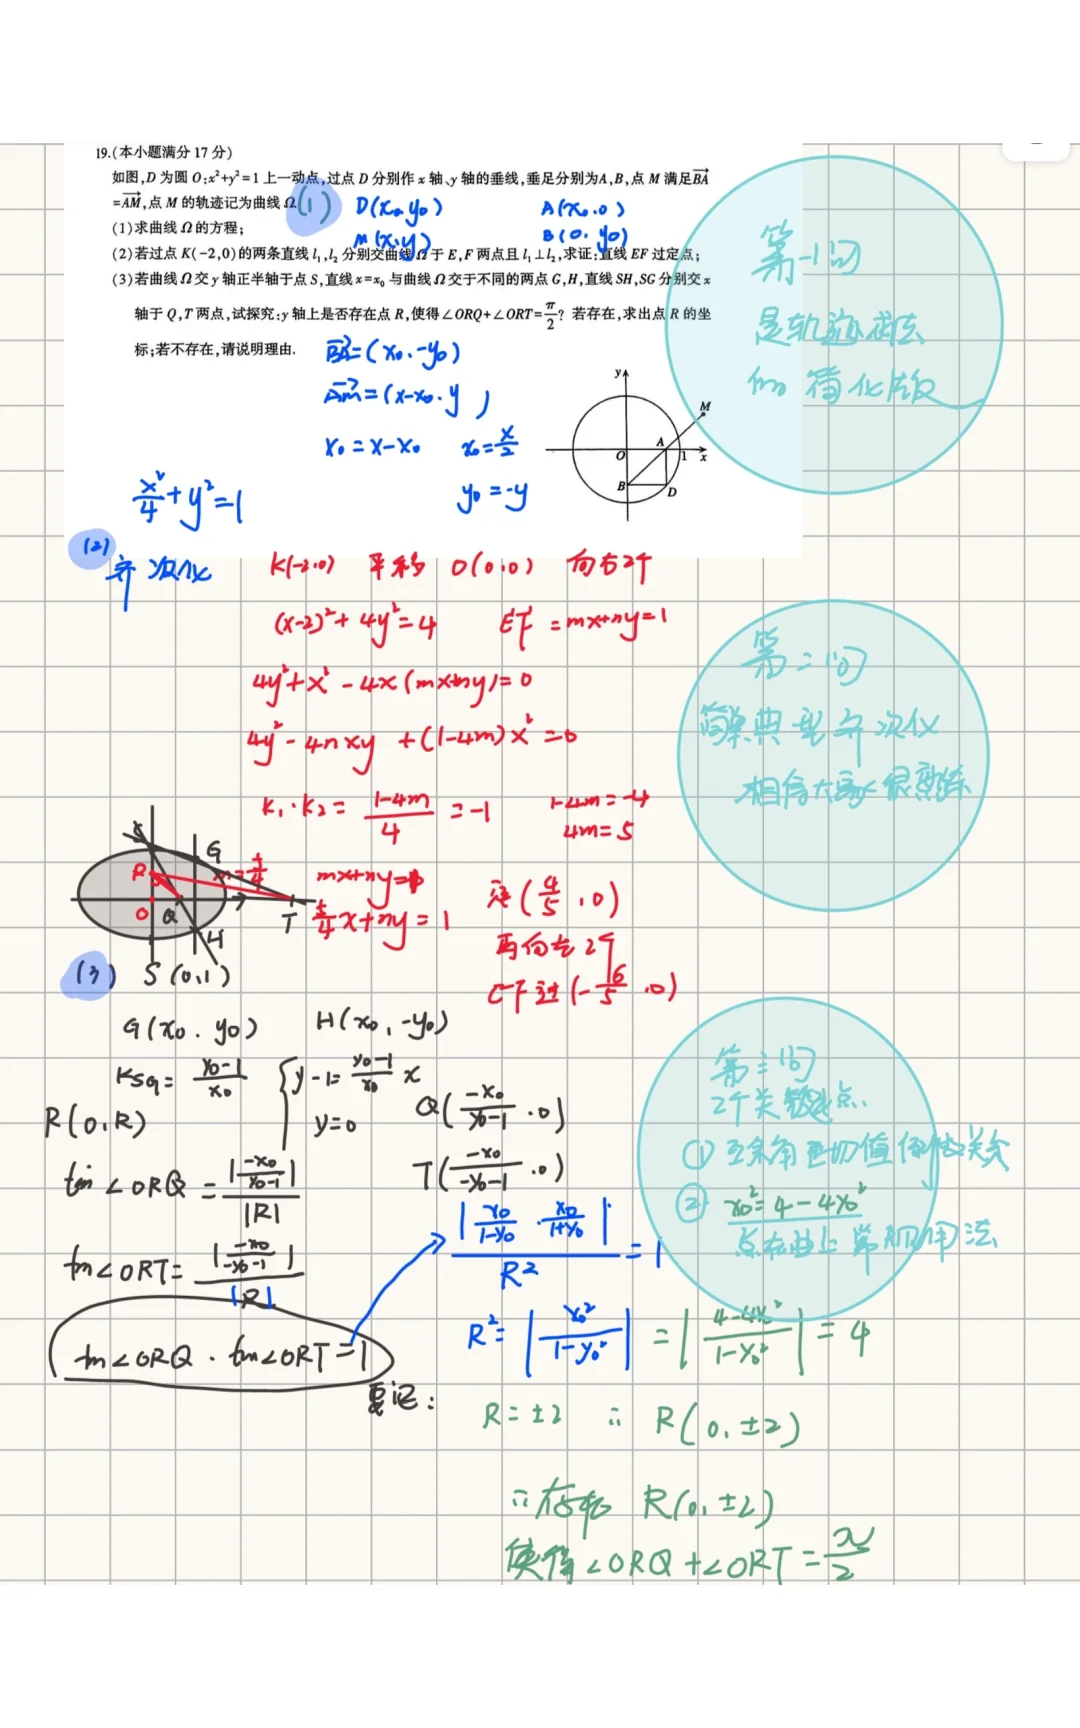 19.(本小题满分17分)
如图,D为圆O:x²+y²=1上一动点,过点D分别作x轴、y轴的垂线,垂足分别为A,B,点M满足BA
=AM,点M的轨迹记为曲线Ω.
(1)求曲线Ω的方程;
(2)若过点K(-2,0)的两条直线l₁,l₂分别交曲线Ω于E,F两点且l₁⊥l₂,求证:直线EF过定点;
(3)若曲线Ω交y轴正半轴于点S,直线x=x₀与曲线Ω交于不同的两点G,H,直线SH,SG分别交x
轴于Q,T两点,试探究:y轴上是否存在点R,使得∠ORQ+∠ORT=π/2?若存在,求出点R的坐
标;若不存在,请说明理由.
(1)
D(x₀,y₀) A(x₀,0)
M(x,y) B(0,y₀)
BA=(x₀,-y₀)
AM=(x-x₀,y)
x₀=x-x₀ x₀=x/2
y₀=-y
x²/4+y²=1
y
M
O A 1 x
B D
第一问
是轨迹方法
的简化版
(2)
齐次化 K(-2,0) 平移 O(0,0) 向右2个
(x-2)²+4y²=4 EF=mx+ny=1
4y²+x²-4x(mx+ny)=0
4y²-4nxy+(1-4m)x²=0
K₁·K₂=(1-4m)/4=-1 1-4m=-4
4m=5
m=5/4 mx+ny=1
5/4x+ny=1
定(4/5,0)
再向左2个
EF过(-6/5,0)
第二问
简单典型齐次化
相信大家很熟练
S G
R
O Q T
H
(3) S(0,1)
G(x₀,y₀) H(x₀,-y₀)
K_SG=(y₀-1)/x₀ { y-1=(y₀-1)/x₀ x
y=0
Q(-x₀/(y₀-1),0)
R(0,R)
T(-x₀/(-y₀-1),0)
tan∠ORQ=|-x₀/(y₀-1)|/|R|
tan∠ORT=|-x₀/(-y₀-1)|/|R|
tan∠ORQ·tan∠ORT=1
要记:
|x₀/(1-y₀)·x₀/(1+y₀)|/R²=1
R²=|x₀²/(1-y₀²)|=|(4-4y₀²)/(1-y₀²)|=4
R=±2 ∴R(0,±2)
∴存在R(0,±2)
使得∠ORQ+∠ORT=π/2
第三问
2个关键点.
①互余角正切值倒数关系
②x₀²=4-4y₀²
点在曲上常用用法